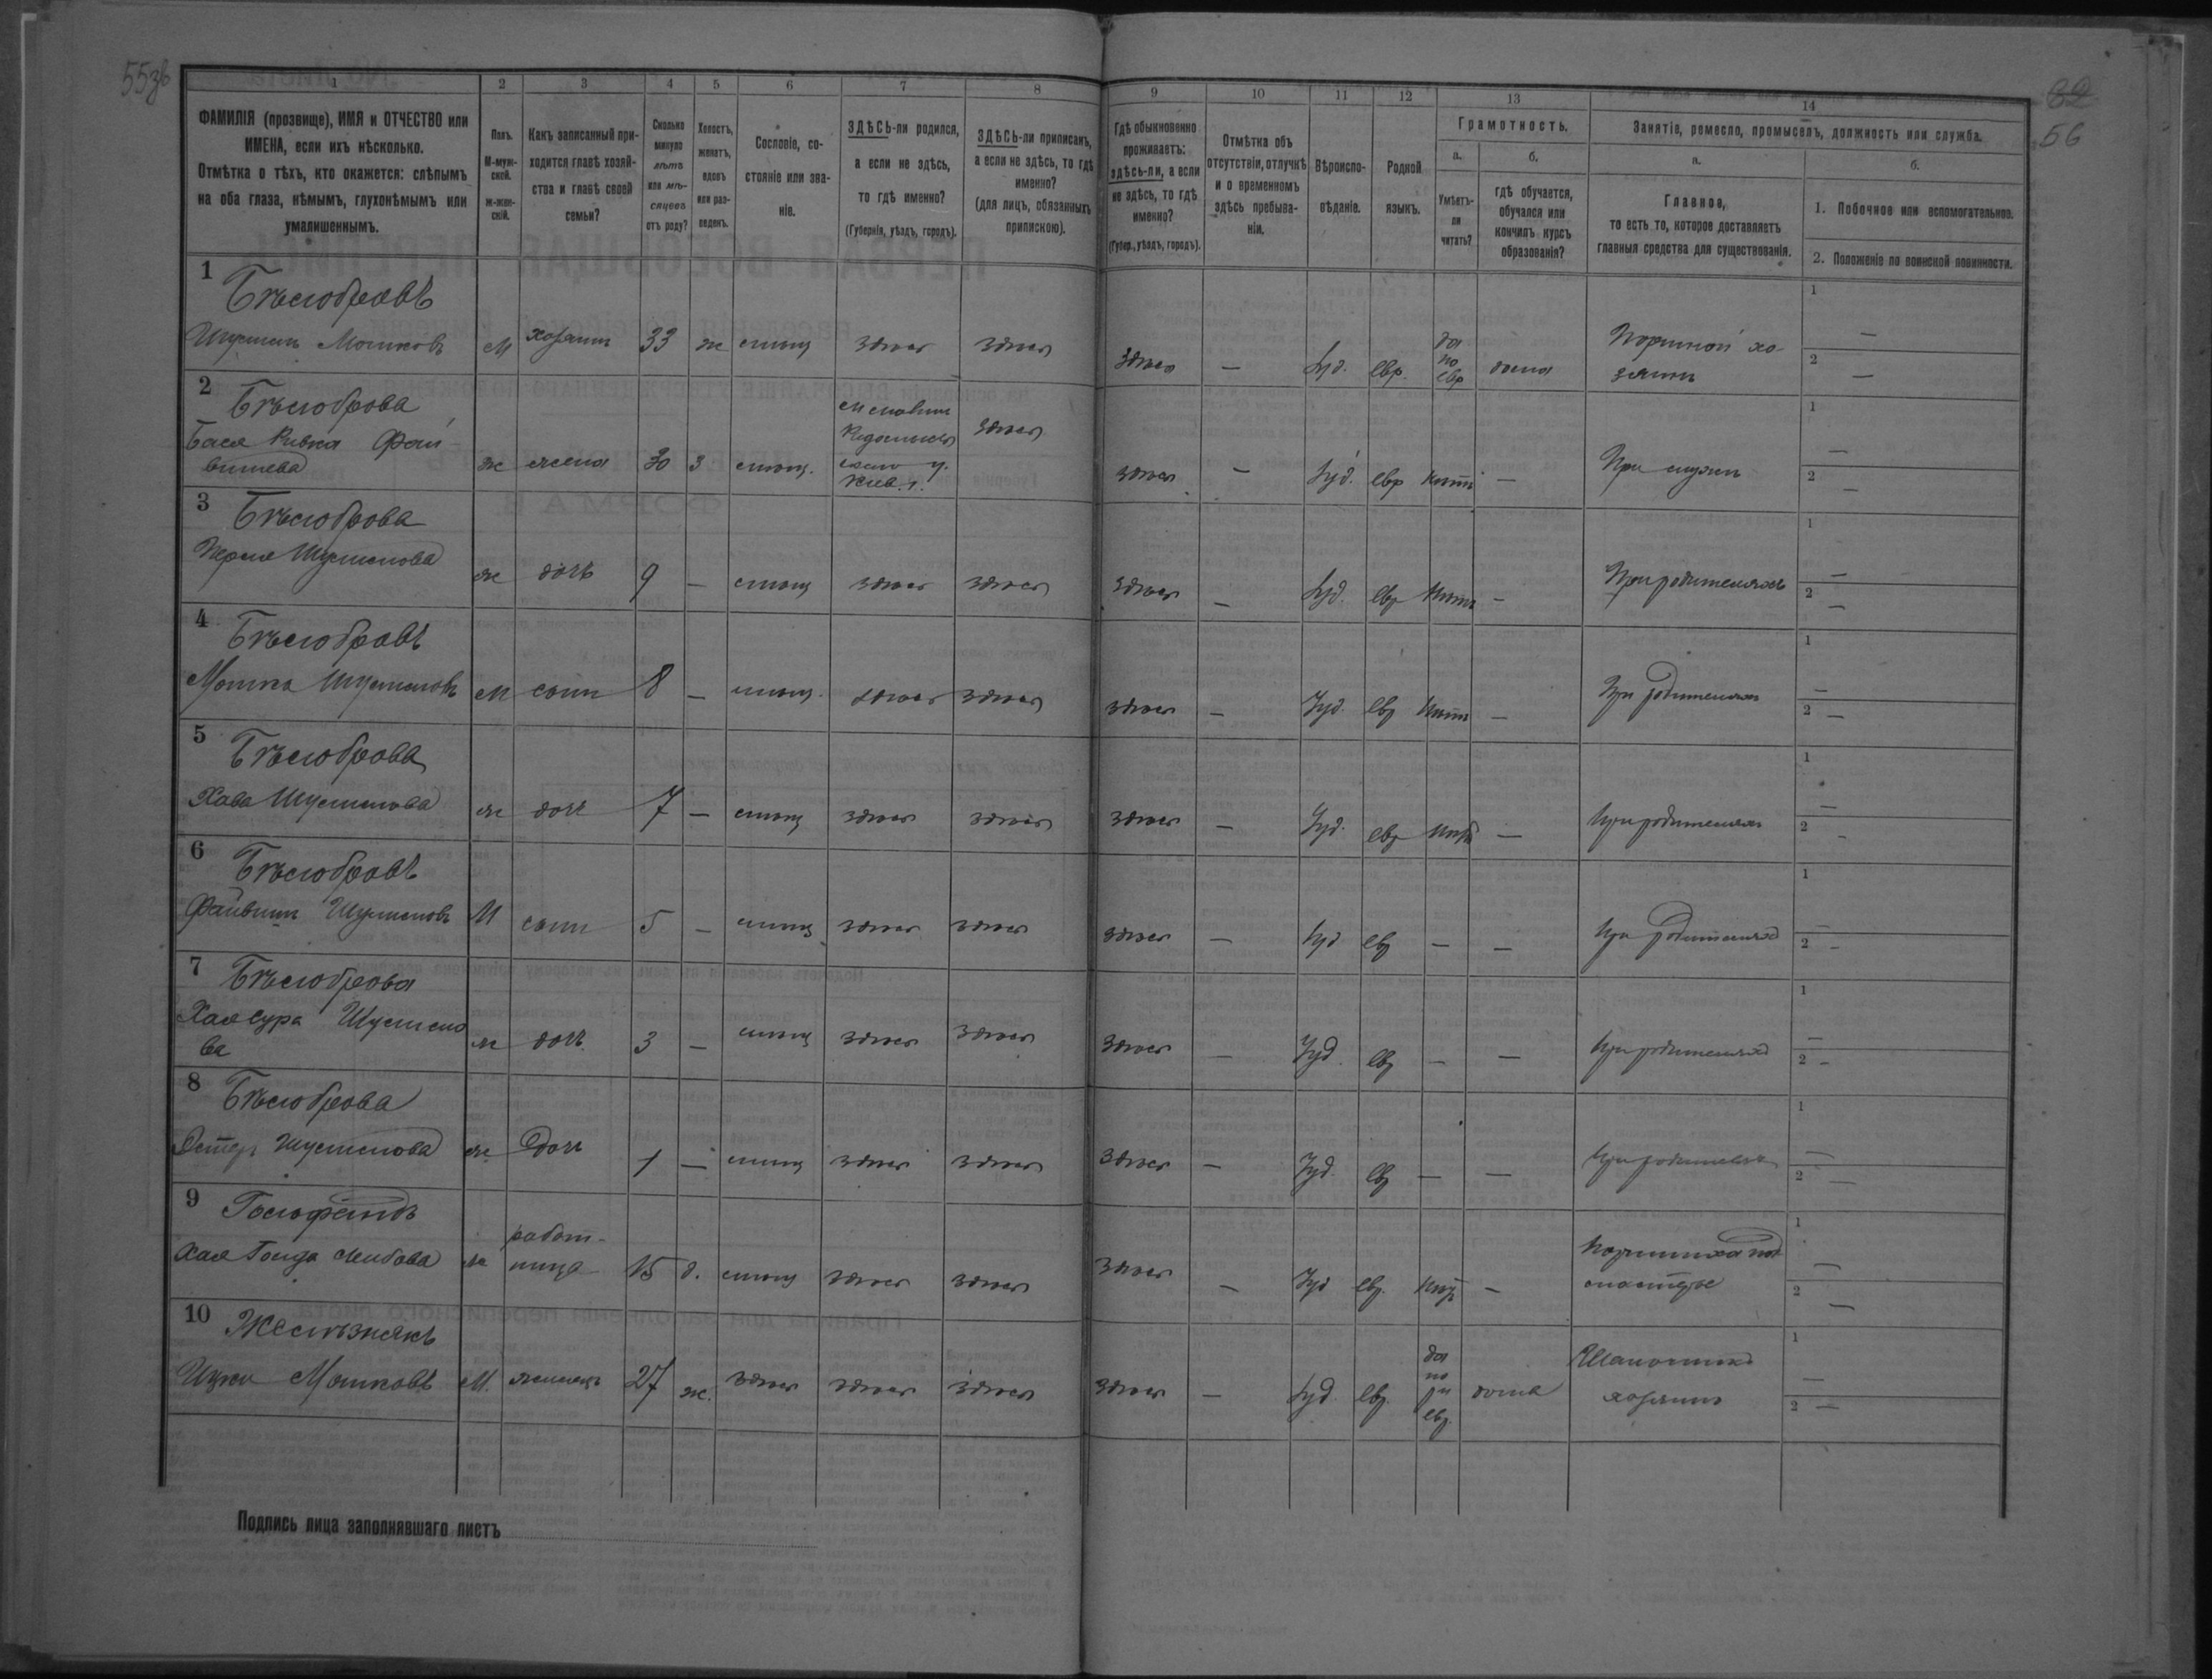 55зв
82
56
1
2
3
4
5
6
7
8
9
10
11
12
13
14
ФАМИЛІЯ (прозвище), ИМЯ и ОТЧЕСТВО или
ИМЕНА, если ихъ нѣсколько.
Отмѣтка о тѣхъ, кто окажется: слѣпымъ
на оба глаза, нѣмымъ, глухонѣмымъ или
умалишеннымъ.
Полъ.
М-муж-
ской.
ж-жен-
скій.
Какъ записанный при-
ходится главѣ хозяй-
ства и главѣ своей
семьи?
Сколько
минуло
лѣтъ
или мѣ-
сяцевъ
отъ роду?
Холостъ,
женатъ,
вдовъ
или раз-
веденъ.
Сословіе, со-
стояніе или зва-
ніе.
ЗДѢСЬ-ли родился,
а если не здѣсь,
то гдѣ именно?
(Губернія, уѣздъ, городъ).
ЗДѢСЬ-ли приписанъ,
а если не здѣсь, то гдѣ
именно?
(для лицъ, обязанныхъ
припискою).
Гдѣ обыкновенно
проживаетъ:
здѣсь-ли, а если
не здѣсь, то гдѣ
именно?
(Губер., уѣздъ, городъ).
Отмѣтка объ
отсутствіи, отлучкѣ
и о временномъ
здѣсь пребыва-
ніи.
Вѣроиспо-
вѣданіе.
Родной
языкъ.
Грамотность.
а.
Умѣетъ-
ли
читать?
б.
гдѣ обучается,
обучался или
кончилъ курсъ
образованія?
Занятіе, ремесло, промыселъ, должность или служба.
а.
Главное,
то есть то, которое доставляетъ
главныя средства для существованія.
б.
1. Побочное или вспомогательное.
2. Положеніе по воинской повинности.
1
Бѣлобровъ
Шулимъ Мошковъ М хозяинъ 33 ж здѣсь здѣсь
здѣсь — Іуд. евр. да по евр дома Портной хо-
зяинъ 1 — 2 —
2
Бѣлоброва
Бася Ривка Фай-
вишева ж жена 30 з здѣсь
здѣсь — Іуд. евр нѣтъ — При мужѣ 1 — 2 —
3
Бѣлоброва
Перля Шулимова ж дочь 9 — здѣсь здѣсь
здѣсь — Іуд. евр нѣтъ — При родителяхъ 1 — 2 —
4
Бѣлобровъ
Мошко Шулимовъ м сынъ 8 — здѣсь здѣсь
здѣсь — Іуд. евр нѣтъ — При родителяхъ 1 — 2 —
5
Бѣлоброва
Хава Шулимова ж дочь 7 — здѣсь здѣсь
здѣсь — Іуд. евр нѣтъ — При родителяхъ 1 — 2 —
6
Бѣлобровъ
Файвишъ Шулимовъ М сынъ 5 — здѣсь здѣсь
здѣсь — Іуд евр — — При родителяхъ 1 — 2 —
7
Бѣлоброва
Хая Сура Шулимо
ва ж дочь 3 — здѣсь здѣсь
здѣсь — Іуд евр — — При родителяхъ 1 — 2 —
8
Бѣлоброва
Эстеръ Шулимова ж дочь 1 — здѣсь здѣсь
здѣсь — Іуд. евр — — При родителяхъ 1 — 2 —
9
Хая Лейбова ж работ-
ница 15 д. здѣсь здѣсь
здѣсь — Іуд евр. нѣтъ — 1 — 2 —
10
Желѣзнякъ
Ицко Мошковъ М. жилецъ 27 ж. здѣсь здѣсь здѣсь
здѣсь — Іуд. евр. да по ру евр. дома
хозяинъ 1 — 2 —
Подпись лица заполнявшаго листъ